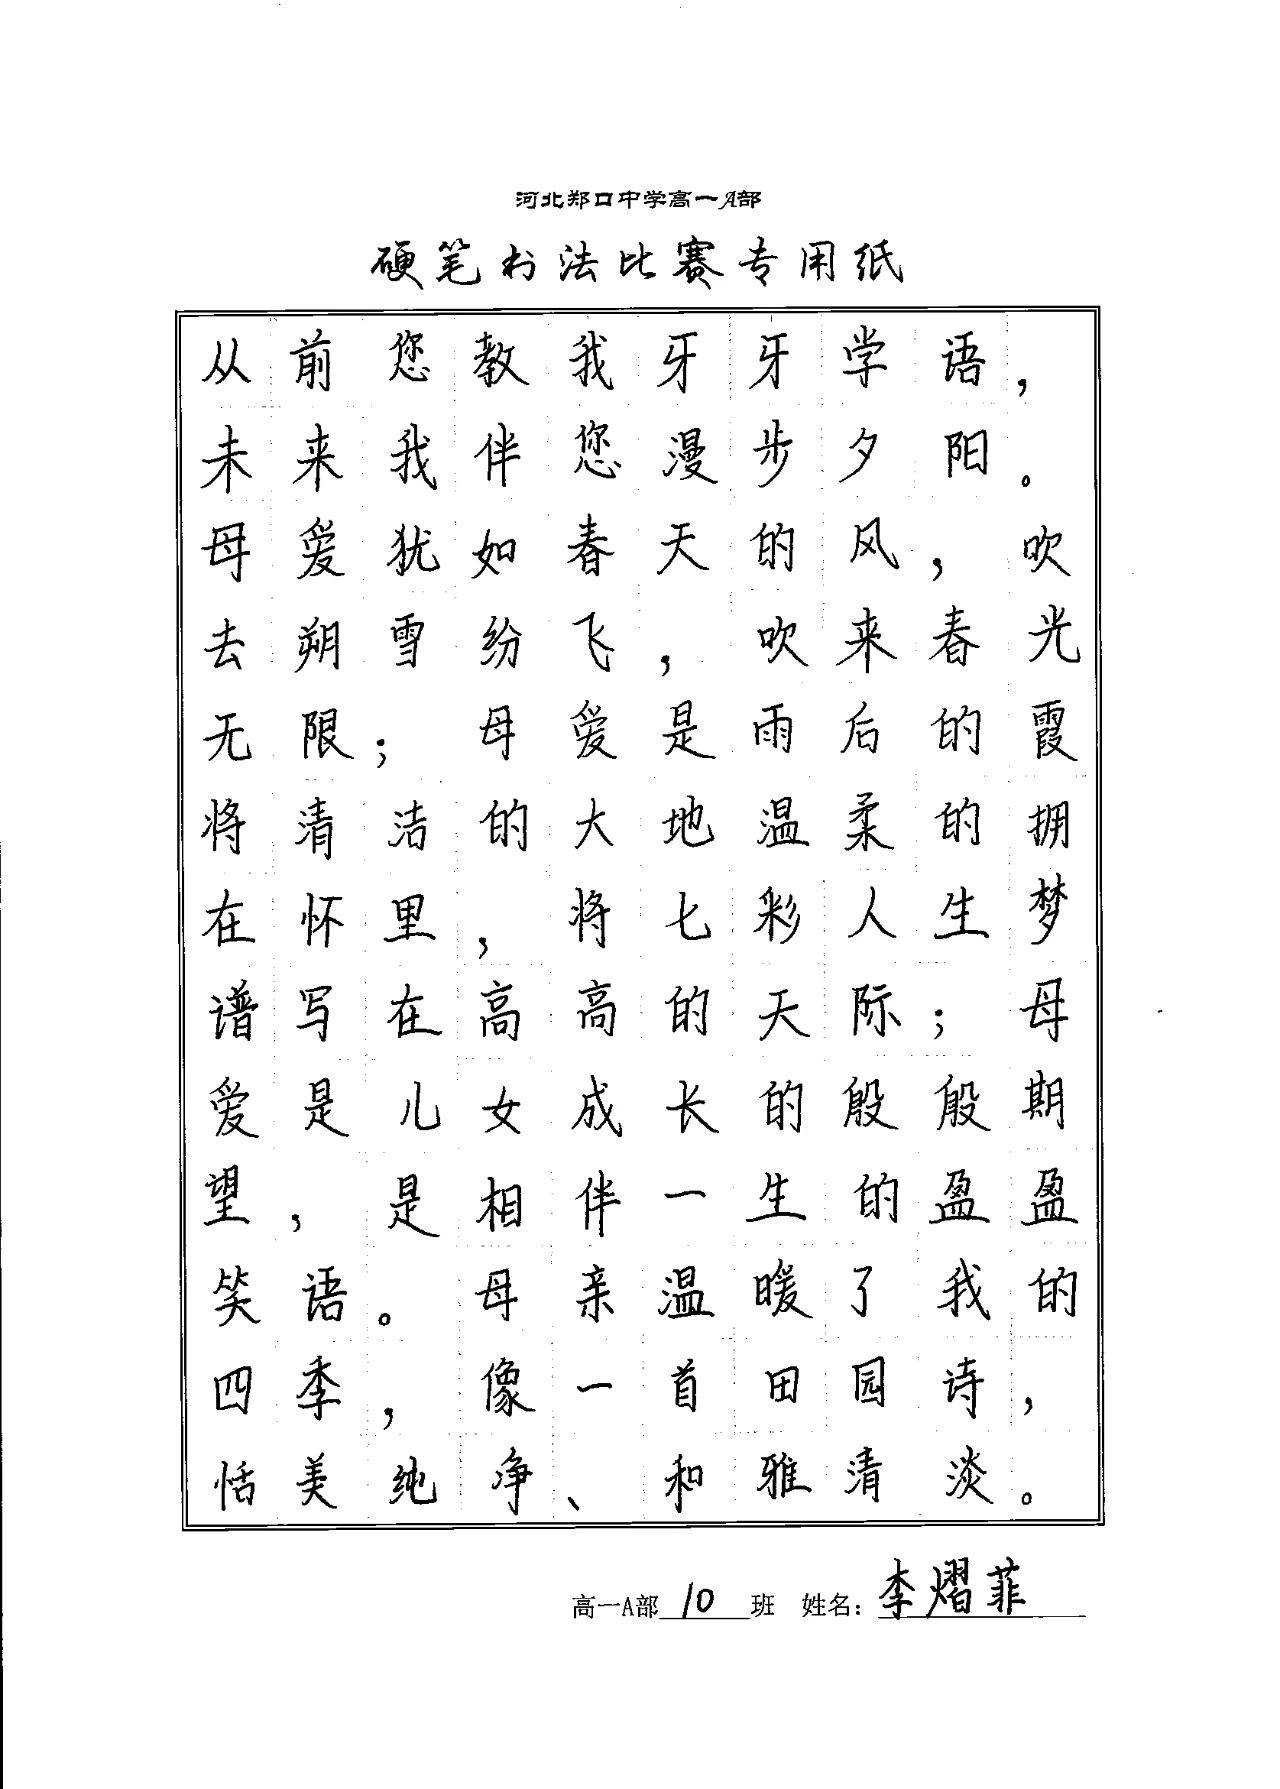 河北郑口中学高一A部
硬笔书法比赛专用纸
从前您教我牙牙学语，
未来我伴您漫步夕阳。
母爱犹如春天的风，吹
去朔雪纷飞，吹来春光
无限；母爱是雨后的霞
将清洁的大地温柔的拥
在怀里，将七彩人生梦
谱写在高高的天际；母
爱是儿女成长的殷殷期
望，是相伴一生的盈盈
笑语。母亲温暖了我的
四季，像一首田园诗，
恬美纯净、和雅清淡。
高一A部 10 班 姓名：李熠菲